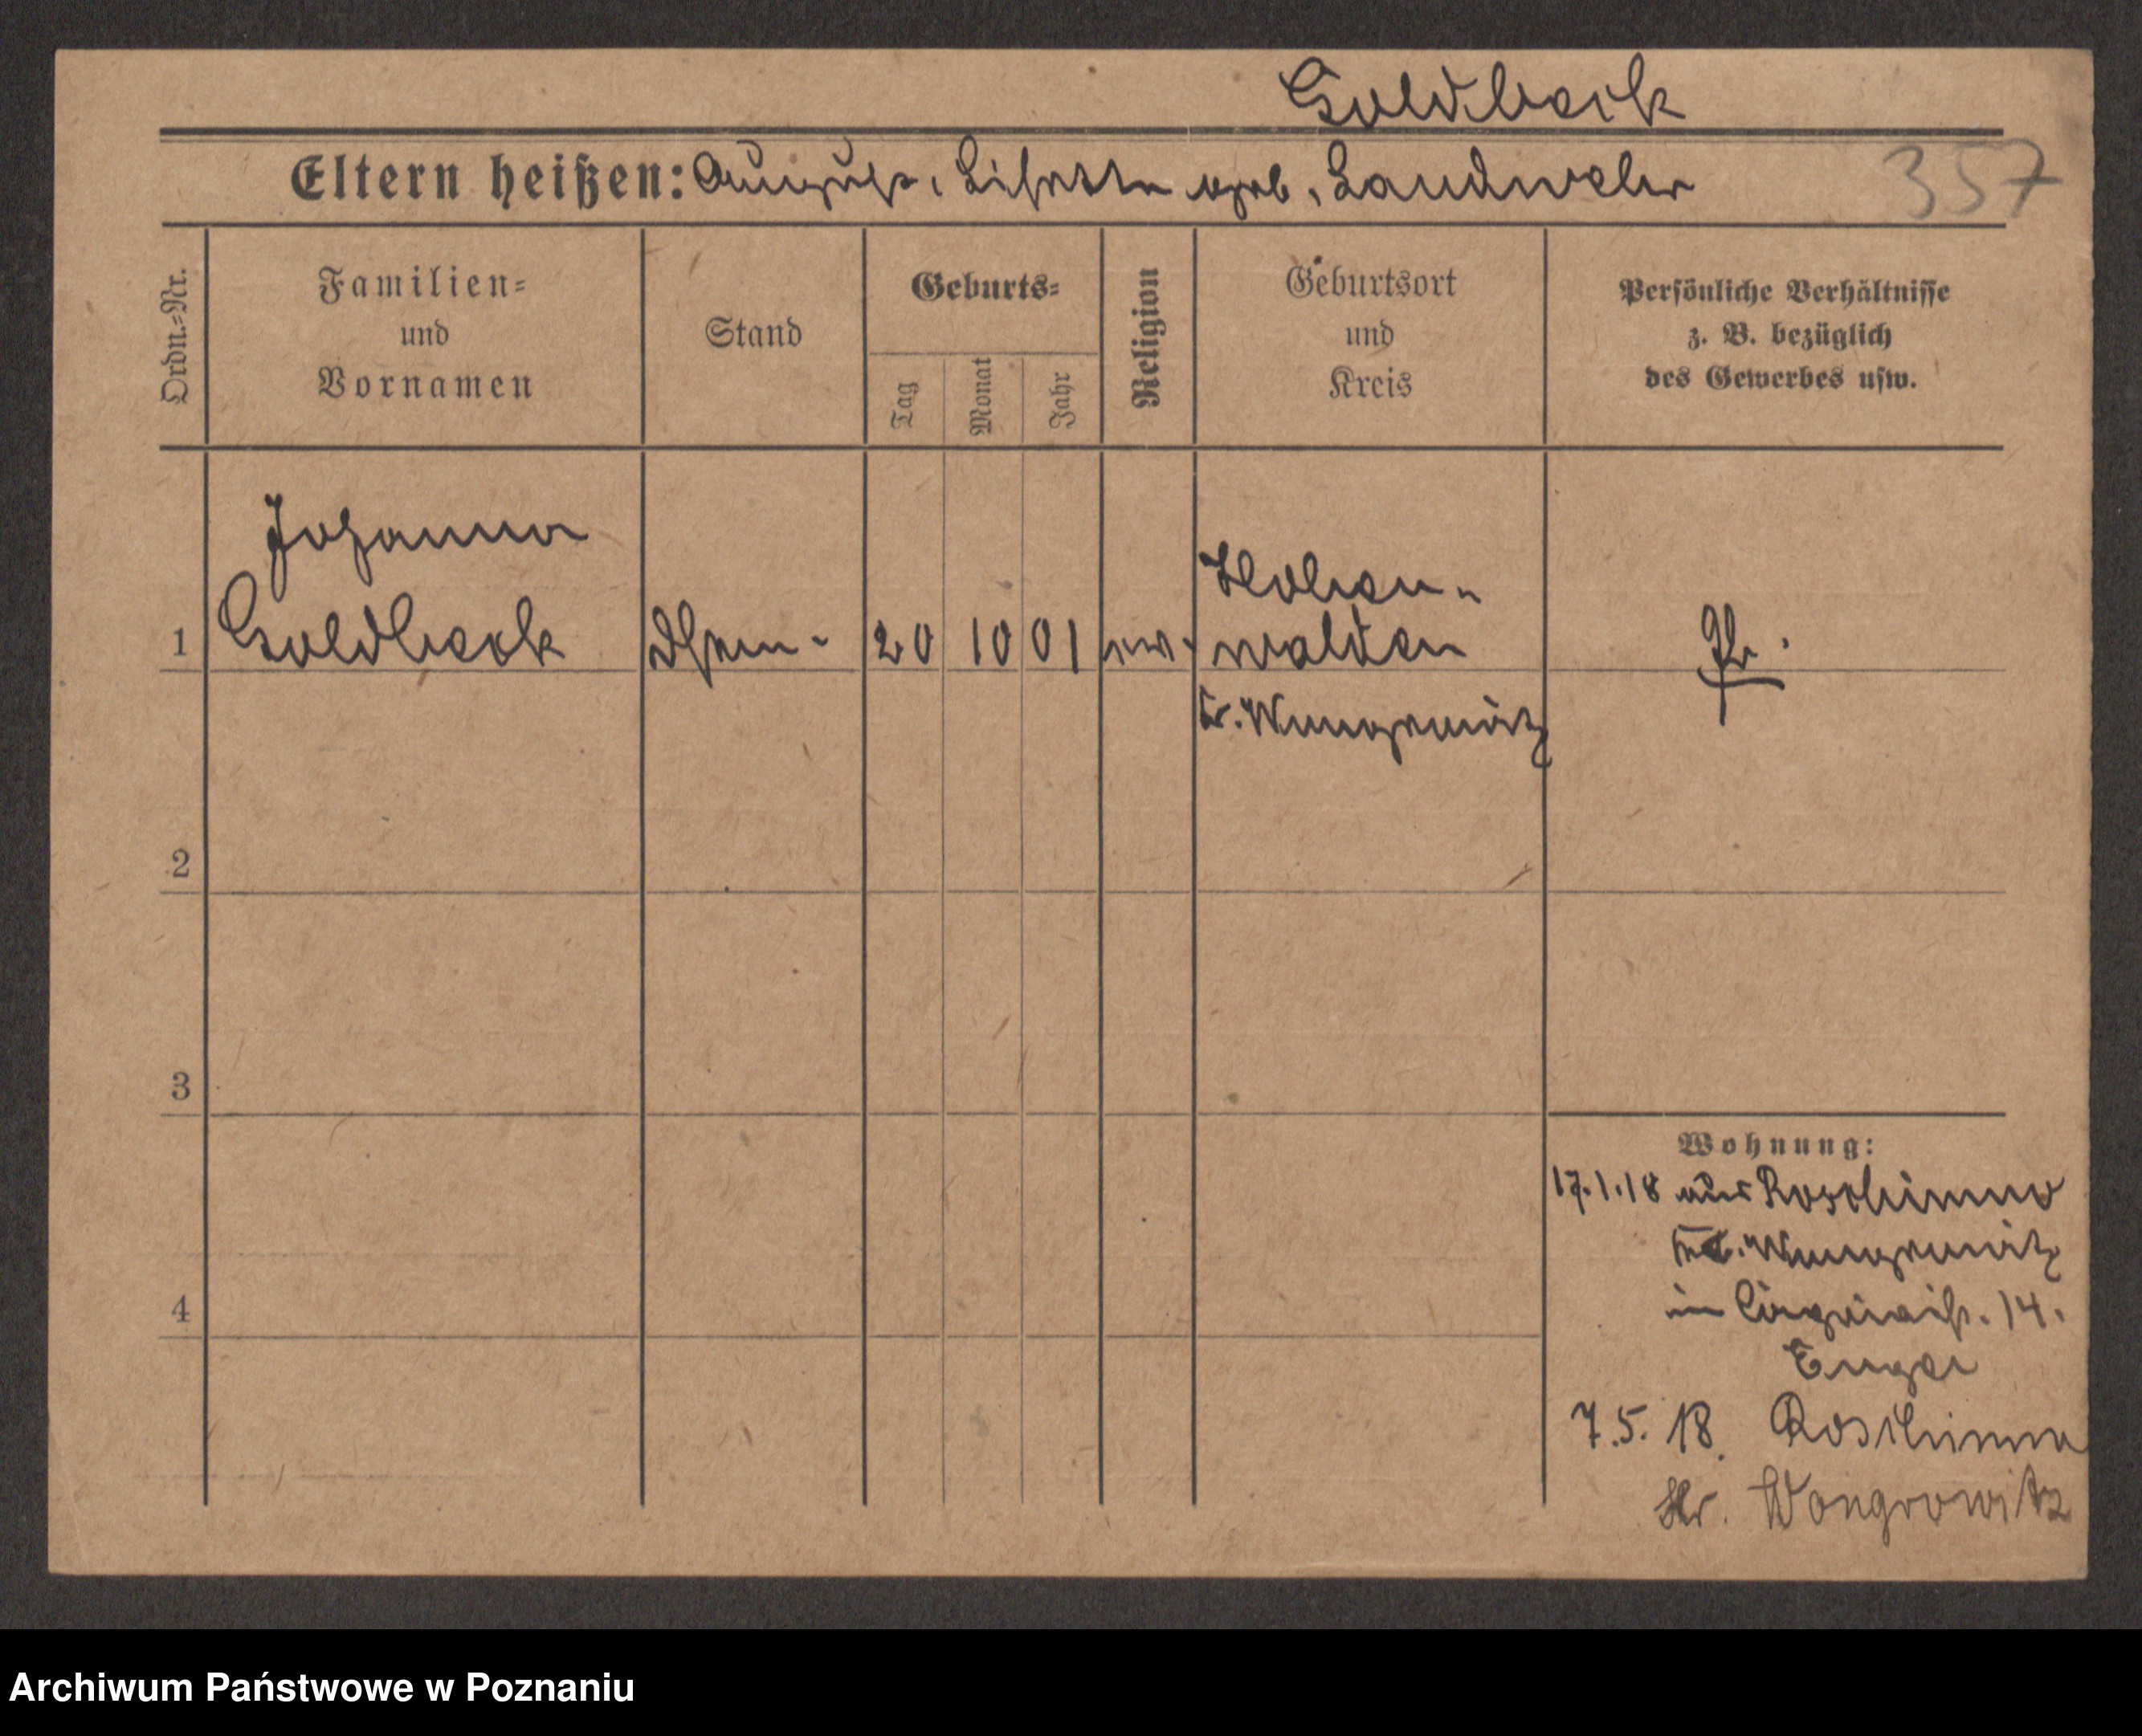 Goldbeck
Eltern heißen: August, Lisette geb. Landwehr
357
Ordn.-Nr.
Familien-
und
Vornamen
Stand
Geburts-
Tag
Monat
Jahr
Religion
Geburtsort
und
Kreis
Persönliche Verhältnisse
z. B. bezüglich
des Gewerbes usw.
Johanna
Goldbeck
20 10 01
ev.
Hohen-
walden
Kr. Wongrowitz
1
2
3
4
Wohnung:
17.1.18 aus Roschinno
Kr. Wongrowitz
14.
7.5.18. Roschinno
Kr. Wongrowitz
Archiwum Państwowe w Poznaniu